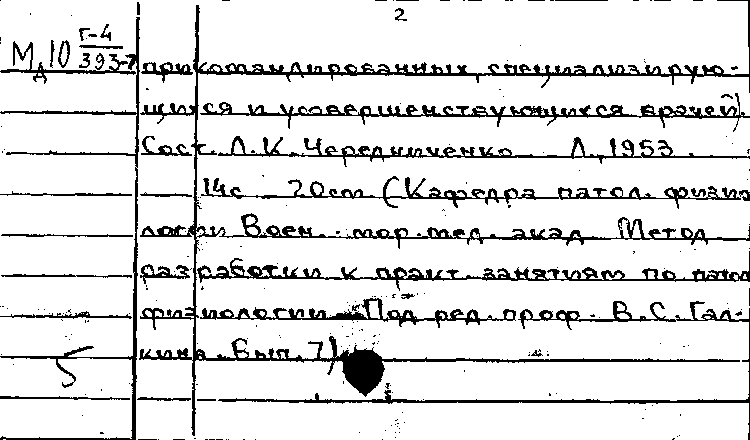 2
Мд10 Г-4
393-7
прикомандированных, специализирую-
щихся и усовершенствующихся врачей).
Сост. Л.К. Чередниченко Л., 1953.
14с 20cm (Кафедра патол. физио
логии Воен.-мор.мед. акад Метод
разработки к практ. занятиям по патол
физиологии Под ред. проф. В.С. Гал-
кина. Вып. 7)
5